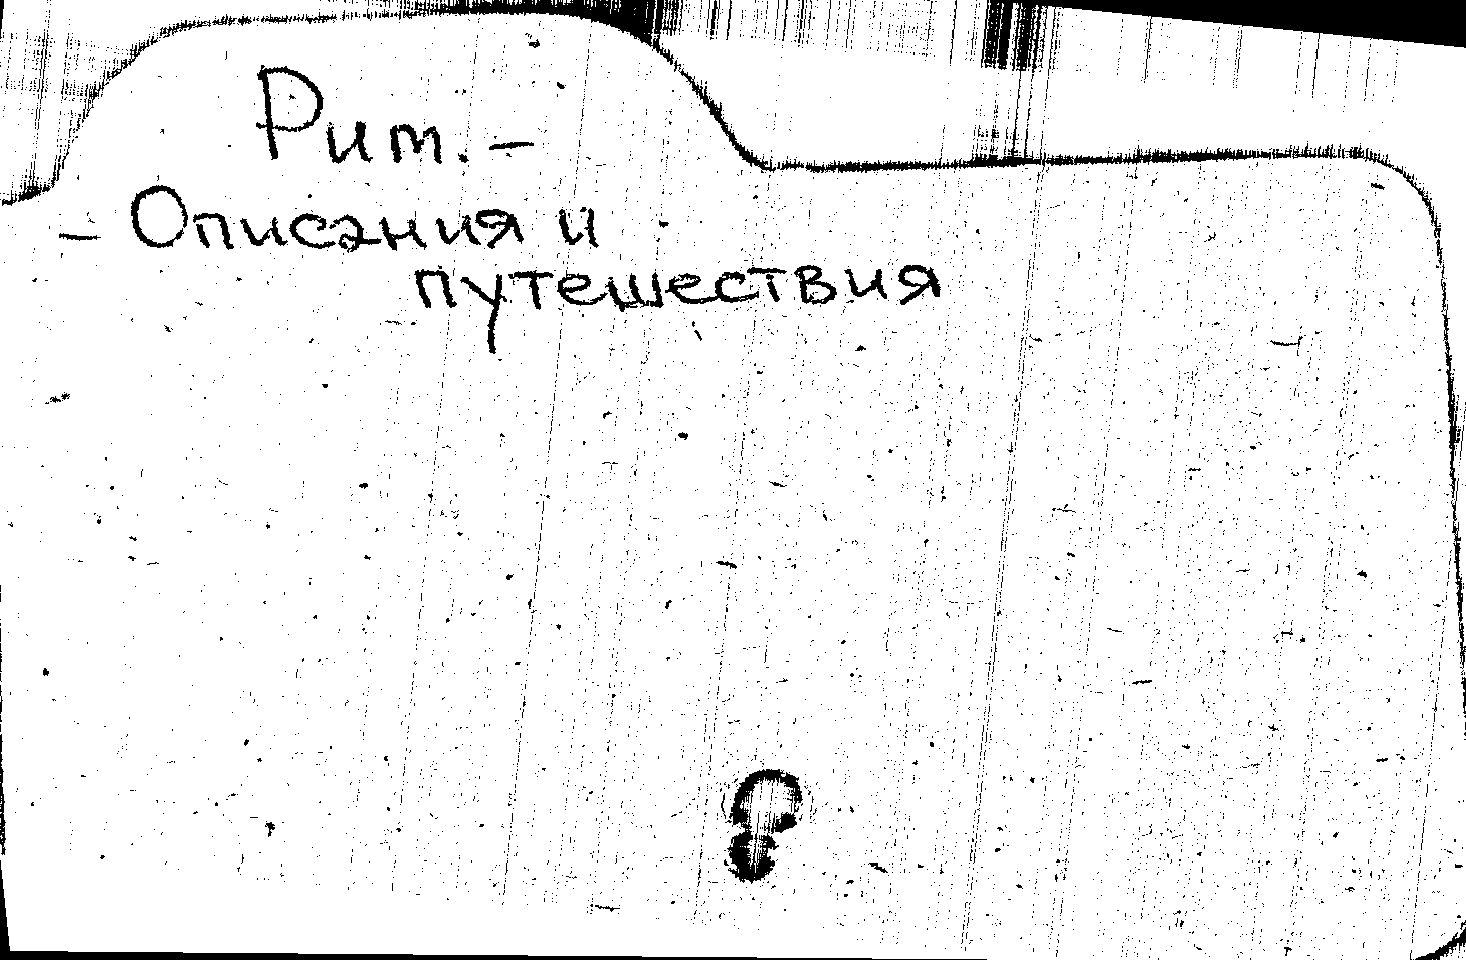 Рит. –
– Описания и
путешествия